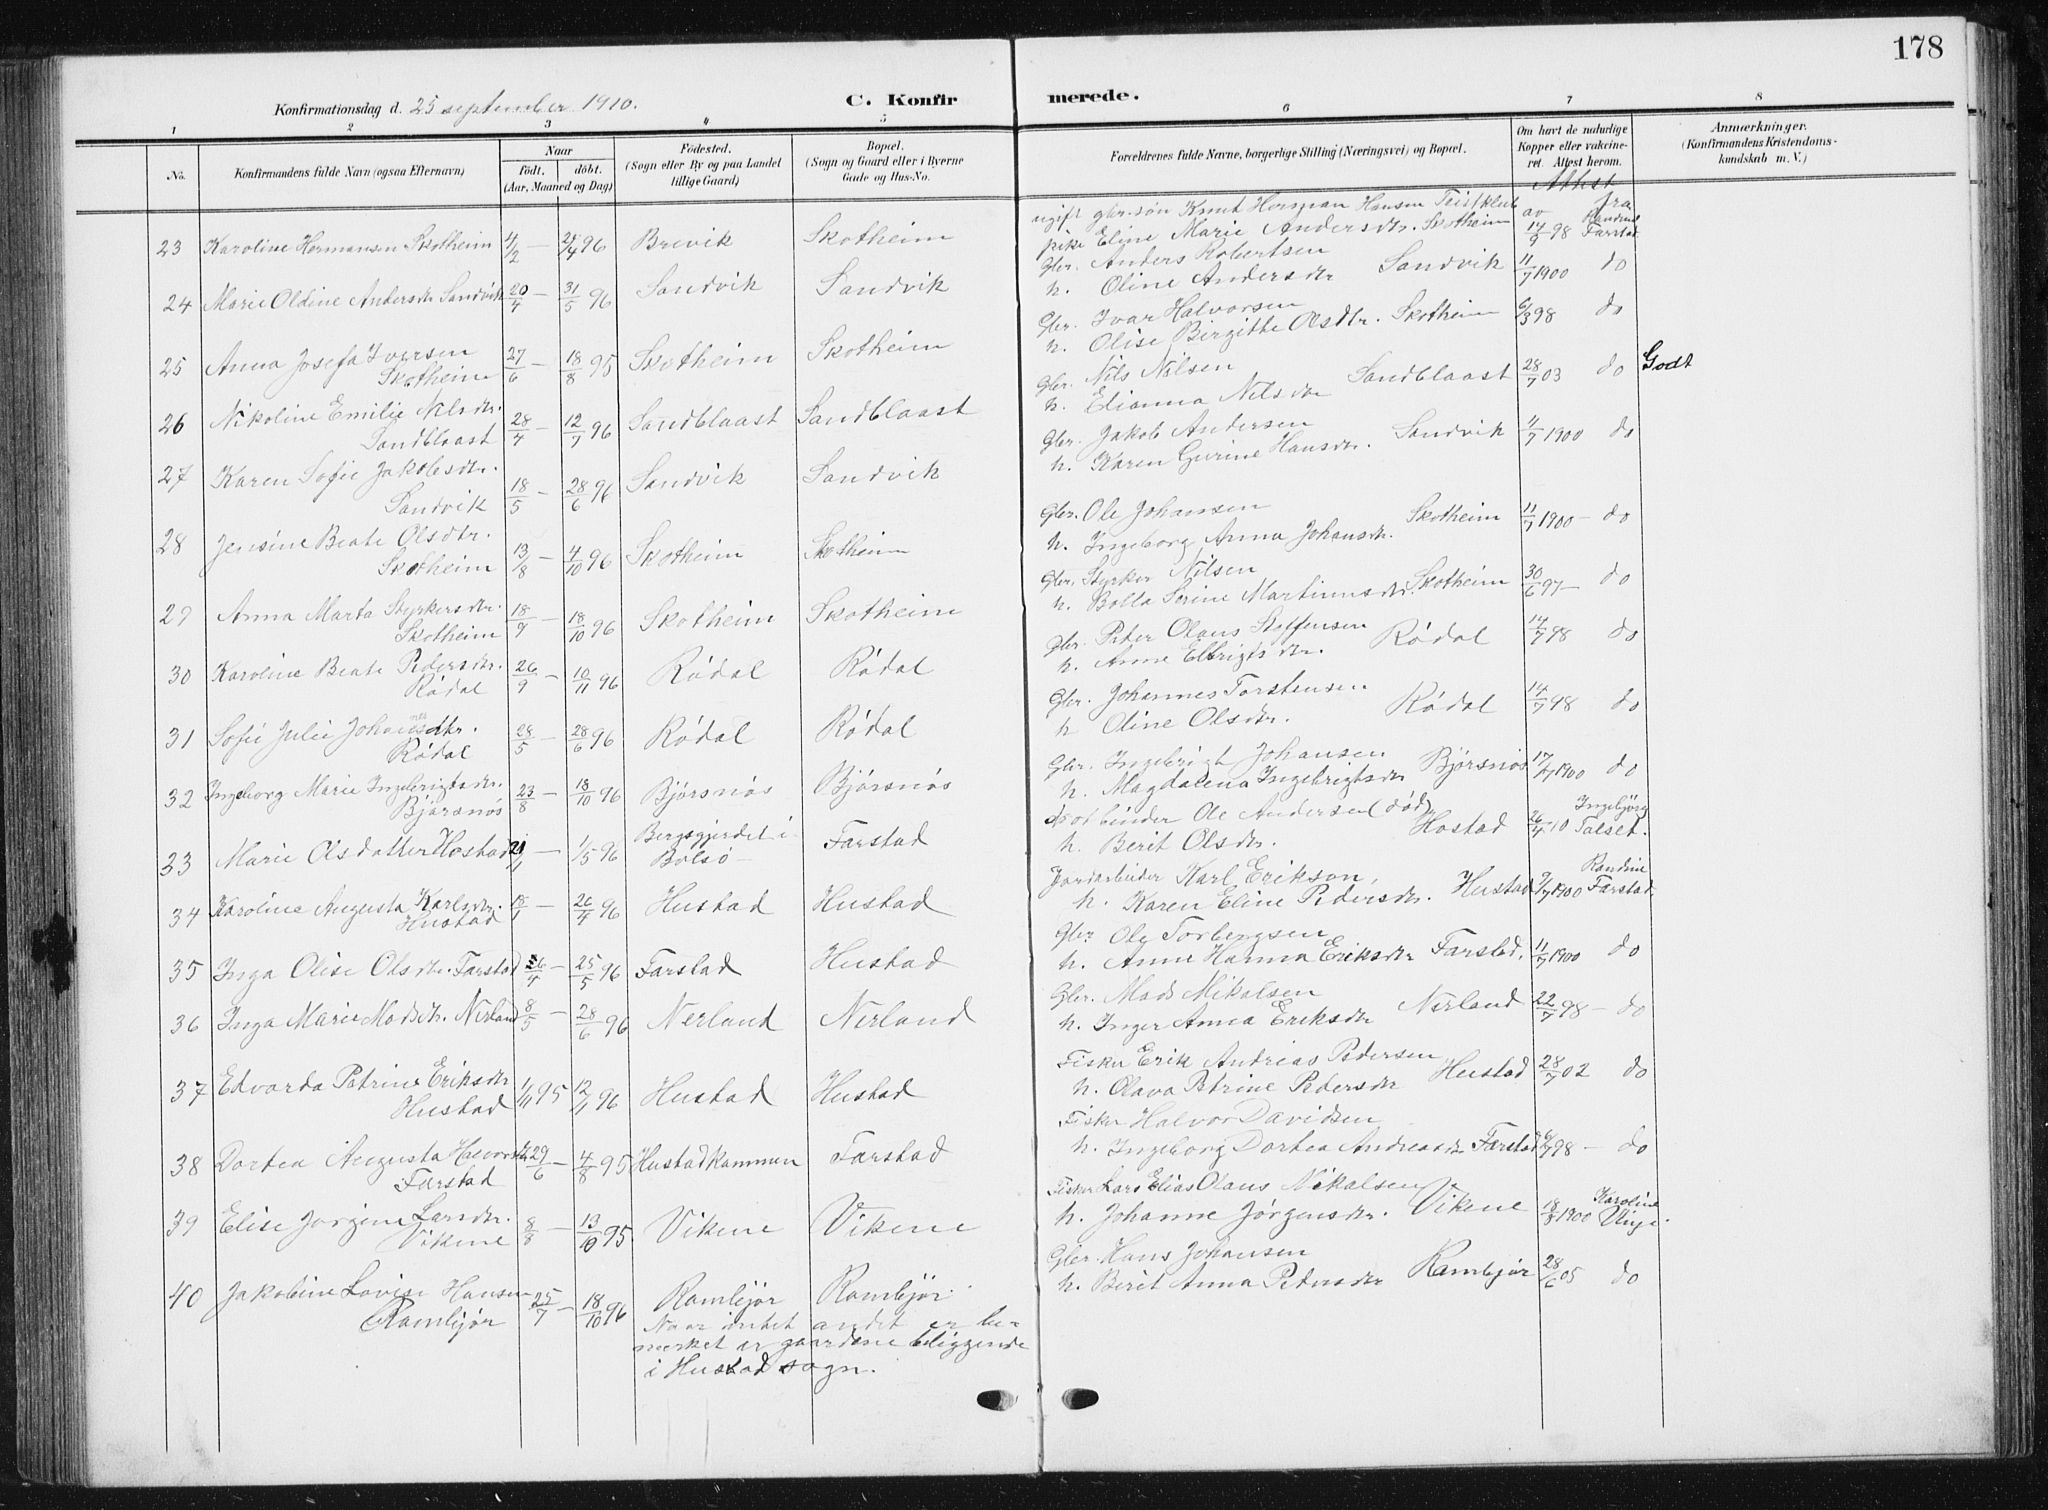 178
Konfirmationsdag d. 25 september 1910. C. Konfirmerede.
1 2 3 4 5 6 7 8
No. Konfirmandens fulde Navn (ogsaa Efternavn) Naar födt. döbt. (Aar, Maaned og Dag) Födested. (Sogn eller By og paa Landet tillige Gaard) Bopæl. (Sogn og Gaard eller i Byerne Gade og Hus-No. Forældrenes fulde Navne, borgerlige Stilling (Næringsvei) og Bopæl. Om havt de naturlige Kopper eller vakcineret. Attest herom. Anmærkninger. (Konfirmandens Kristendomskundskab m. V.)
Attest
ugift gbr.søn Knut Herman Hansen Teistklub av fra Randine
23 Karoline Hermansen Skotheim 4/2 — 26/4 96 Brevik Skotheim pike Eline Marie Andersdtr. Skotheim 14/9 98 Farstad
Gbr. Anders Robertsen
24 Marie Oldine Andersdtr Sandvik 20/4 — 31/5 96 Sandvik Sandvik h. Oline Andersdtr Sandvik 11/7 1900 do
Gbr. Ivar Halvorsen
25 Anna Josefa Iversen Skotheim 27/6 — 18/8 95 Skotheim Skotheim h. Olise Birgitte Olsdtr. Skotheim 6/3 98 do
Gbr. Nils Nilsen
26 Nikoline Emilie Nilsdtr. Sandblaast 28/4 — 12/7 96 Sandblaast Sandblaast h. Elianna Nilsdtr Sandblaast 28/7 03 do Godt
Gbr. Jakob Andersen
27 Karen Sofie Jakobsdtr. Sandvik 18/5 — 28/6 96 Sandvik Sandvik h. Karen Gurine Hansdtr. Sandvik 11/7 1900 do
Gbr. Ole Johansen
28 Jensine Beate Olsdtr. Skotheim 13/8 — 4/10 96 Skotheim Skotheim h. Ingeborg Anna Johansdtr. Skotheim 11/7 1900 — do
Gbr. Styrker Nilsen
29 Anna Marta Styrkersdtr. Skotheim 18/9 — 18/10 96 Skotheim Skotheim h. Bolla Serine Martinusdtr. Skotheim 30/6 97 — do
Gbr. Peter Olaus Steffensen
30 Karoline Beate Pedersdtr. Rödal 26/9 — 10/11 96 Rödal Rödal h. Anne Elbrigtsdtr. Rödal 14/7 98 do
Gbr. Johannes Torstensen
31 Sofie Julie Johannesdtr. Rödal 28/5 — 28/6 96 Rödal Rödal h Oline Olsdtr. Rödal 14/7 98 do
Gbr. Ingebrigt Johansen
32 Ingeborg Marie Ingebrigtsdtr. Björsnös 23/8 — 18/10 96 Björsnös Björsnös h. Magdalena Ingebrigtsdtr Björsnös 17/7 1900 do
binder Ole Andersen (död) Ingebjörg
23 Marie Olsdatter Hostad 21/1 — 1/5 96 Bergsgjerdet i Bolsö Farstad h. Berit Olsdtr. Hostad 26/4 10 Talset.
Jordarbeider Karl Erikson, Randine
34 Karoline Augusta Karlsdtr. Hustad 18/1 — 26/4 96 Hustad Hustad h. Karen Eline Pedersdtr. Hustad 9/7 1900 Farstad
Gbr Ole Torbergsen
35 Inga Olise Olsdtr. Farstad 26/4 — 25/5 96 Farstad Hustad h. Anne Hanna Eriksdtr Farstad. 11/7 1900 do
Gbr. Mads Mikalsen
36 Inga Marie Madsdtr. Nerland 8/5 — 28/6 96 Nerland Nerland h. Inger Anna Eriksdtr Nerland 22/7 98 — do
Fisker Erik Andreas Pedersen
37 Edvarda Petrine Eriksdtr Hustad 1/11 95 12/11 96 Hustad Hustad h. Olava Petrine Pedersdtr Hustad 28/7 02 do
Fisker Halvor Davidsen
38 Dortea Augusta Halvorsdtr Farstad 29/6 — 4/8 95 Hustadkammen Farstad h. Ingeborg Dortea Andreasdtr Farstad 6/7 98 — do
Fisker Lars Elias Olaus Nikolsen Karoline
39 Elise Jorgine Larsdtr. Vikene 8/8 — 13/10 95 Vikene Vikene h. Johanne Jörgensdtr. Vikene 18/8 1900 Vinje.
Gbr. Hans Johansen
40 Jakobine Lovise Hansen Rambjör 25/7 — 18/10 96 Rambjör Rambjör. h. Berit Anna Pedersdtr Rambjör 28/6 05 do
Naar intet andet er be-
merket er gaardene beliggende
i Hustad sogn.